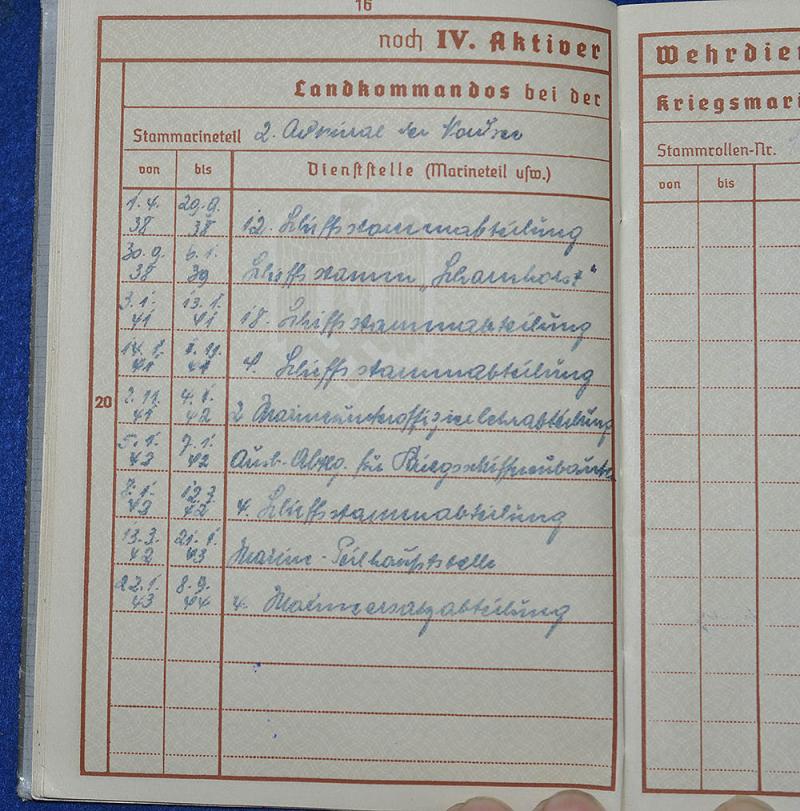 16
noch IV. Aktiver
Landkommandos bei der
Stammarineteil 2. Admiral der Nordsee
von bis Dienststelle (Marineteil usw.)
1.4. 38 29.9. 38 12. Schiffsstammabteilung
30.9. 38 6.1. 39 Schiffsstamm „Scharnhorst“
3.1. 41 13.1. 41 18. Schiffsstammabteilung
14.1. 41 1.11. 41 4. Schiffsstammabteilung
20
2.11. 41 4.1. 42 2 Marineunteroffizierlehrabteilung
5.1. 42 7.1. 42 für Kriegsschiffneubauten
8.1. 42 12.3. 42 4. Schiffsstammabteilung
13.3. 42 21.1. 43 Marine-
22.1. 43 8.9. 44 4. Marineersatzabteilung
Wehrdien
Kriegsmari
Stammrollen-Nr.
von bis